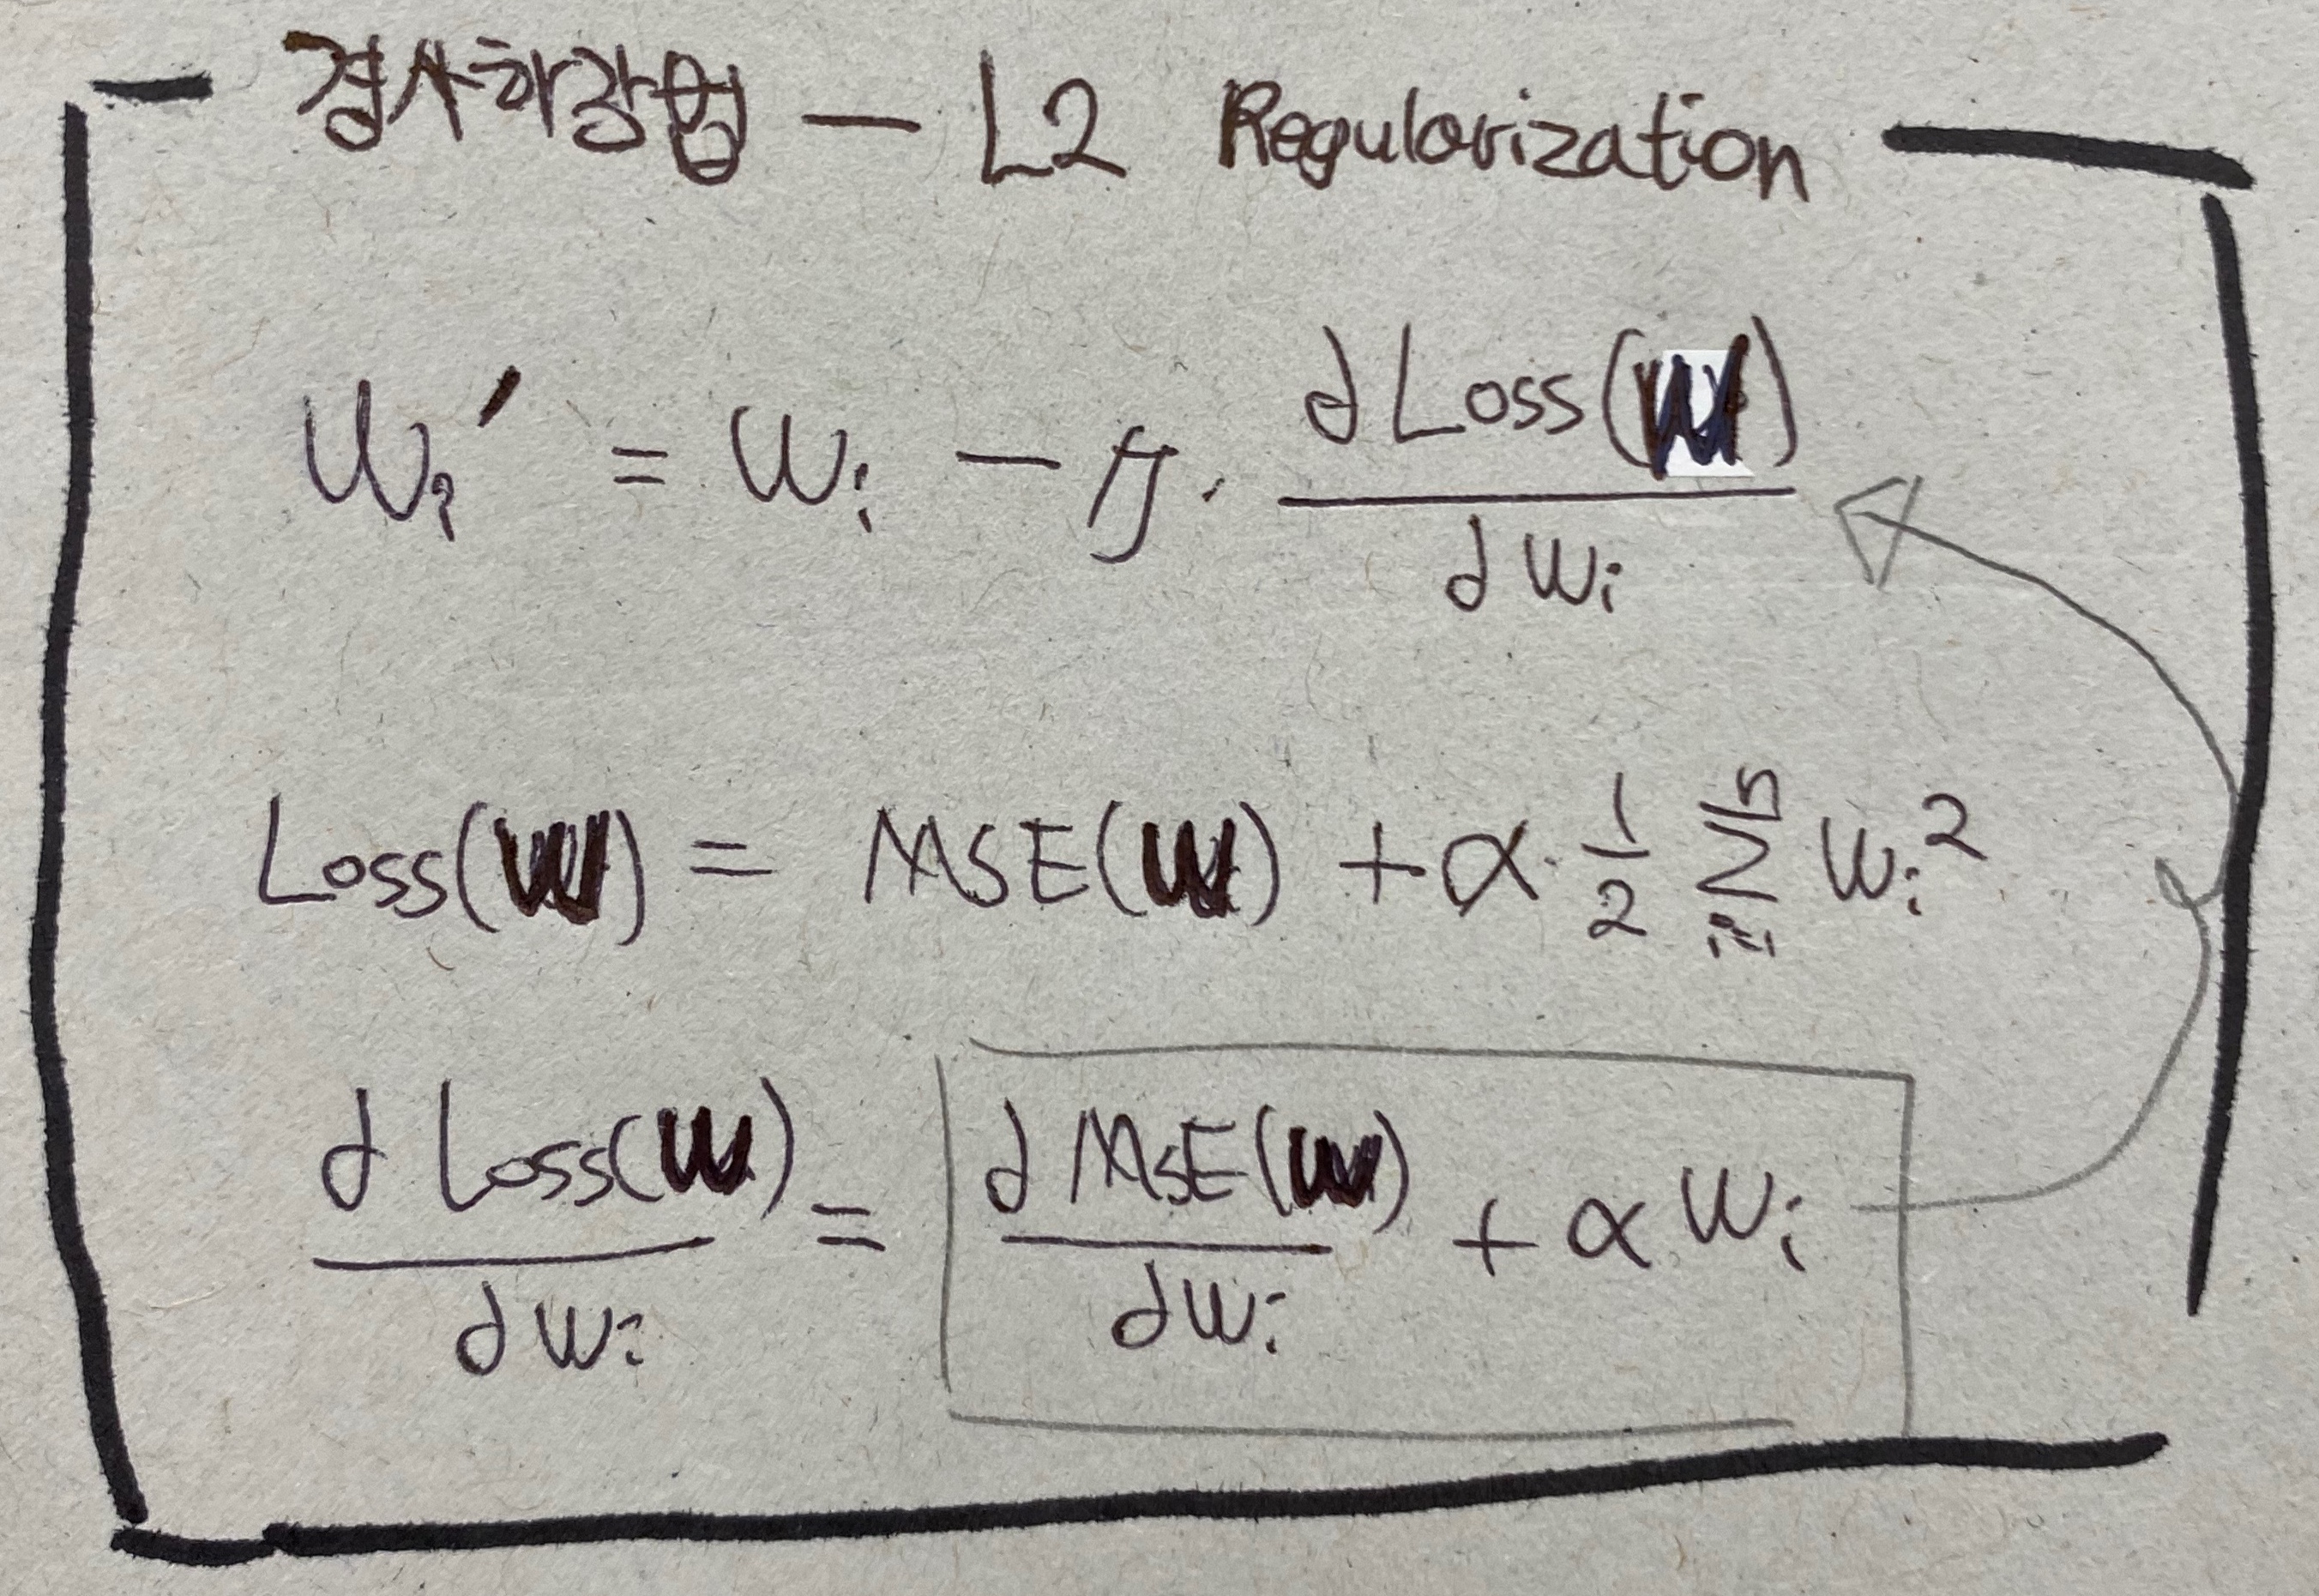 경사하강법 — L2 Regularization
Wᵢ' = Wᵢ − η · ∂Loss(W) / ∂Wᵢ
Loss(W) = MSE(W) + α · 1/2 Σᵢ₌₁ⁿ Wᵢ²
∂Loss(W) / ∂Wᵢ = ∂MSE(W) / ∂Wᵢ + αWᵢ